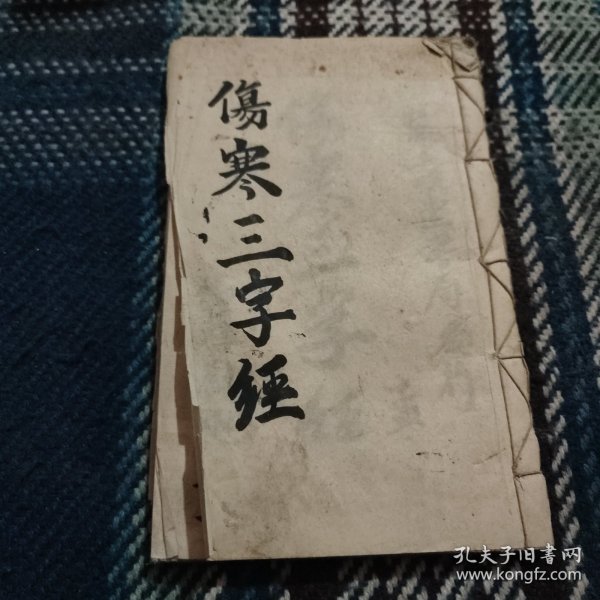 傷寒三字經
孔夫子旧書网
www.kongfz.com